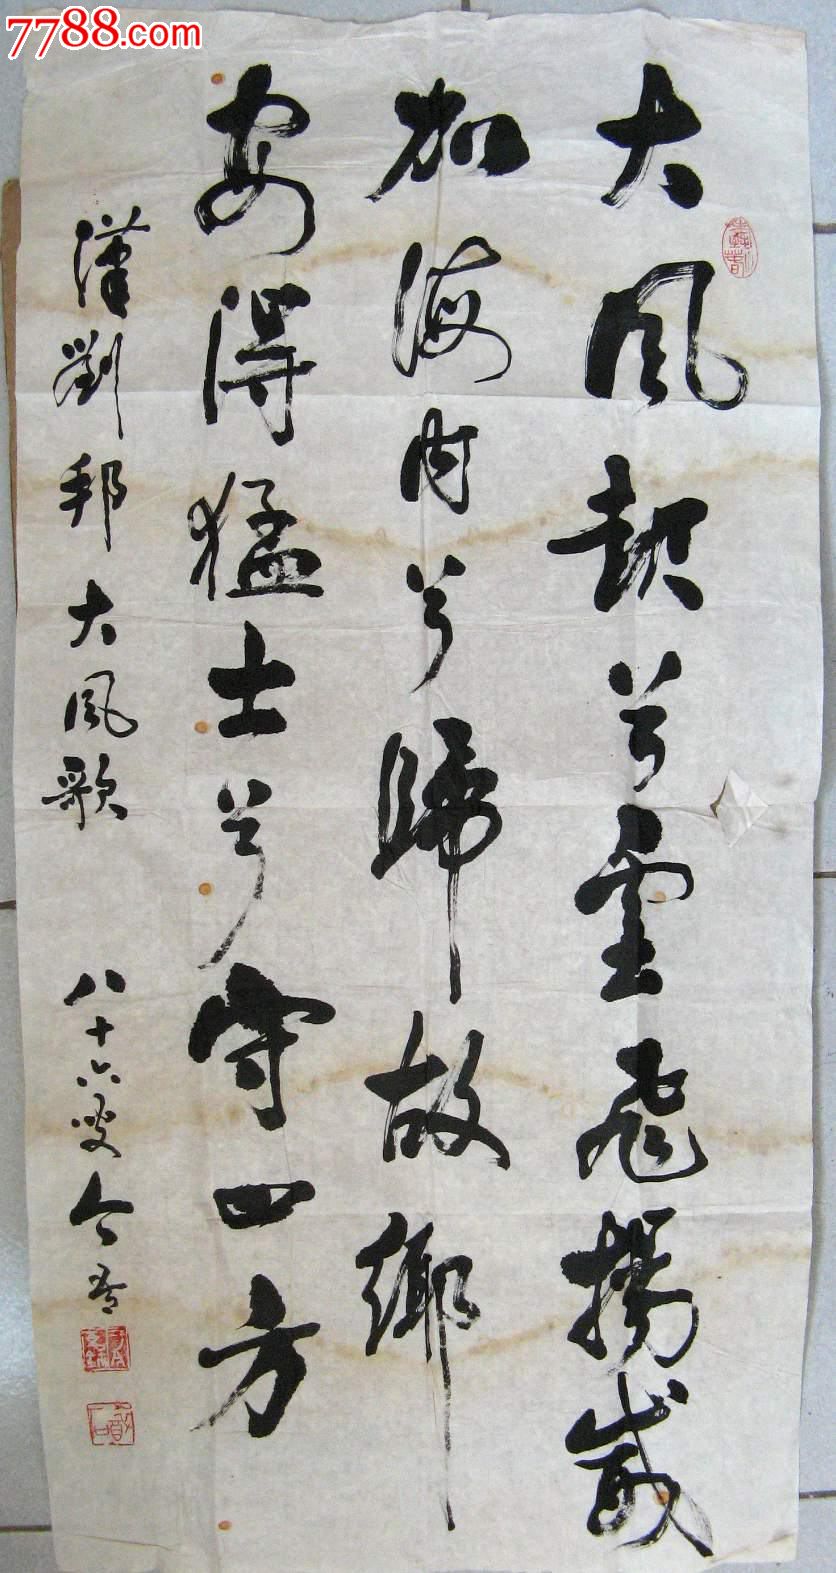 7788.com
大風起兮雲飛揚威
加海内兮歸故鄉
安得猛士兮守四方
漢劉邦大風歌
八十六叟今吾